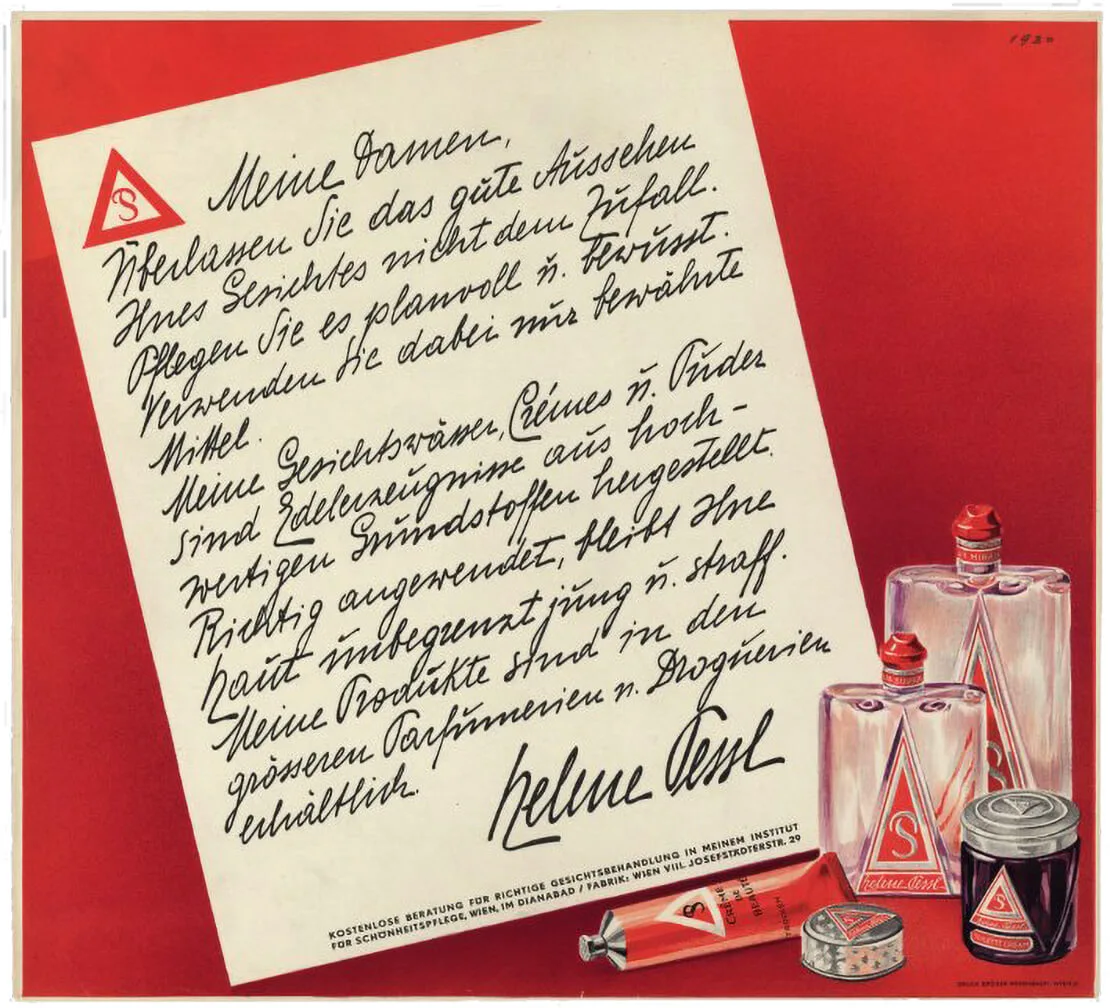 Meine Damen,
Überlassen Sie das gute Aussehen
Ihres Gesichtes nicht dem Zufall.
Pflegen Sie es planvoll u. bewusst.
Verwenden Sie dabei nur bewährte
Mittel.
Meine Gesichtswässer, Crémes u. Puder
sind Edelerzeugnisse aus hoch-
wertigen Grundstoffen hergestellt.
Richtig angewendet, bleibt Ihre
Haut unbegrenzt jung u. straff.
Meine Produkte sind in den
grösseren Parfümerien u. Droguerien
erhältlich.
Helene Pessl
KOSTENLOSE BERATUNG FÜR RICHTIGE GESICHTSBEHANDLUNG IN MEINEM INSTITUT
FÜR SCHÖNHEITSPFLEGE, WIEN, IM DIANABAD / FABRIK: WIEN VIII. JOSEFSTÄDTERSTR. 29
CRÈME
DE
BEAUTÉ
Helene Pessl